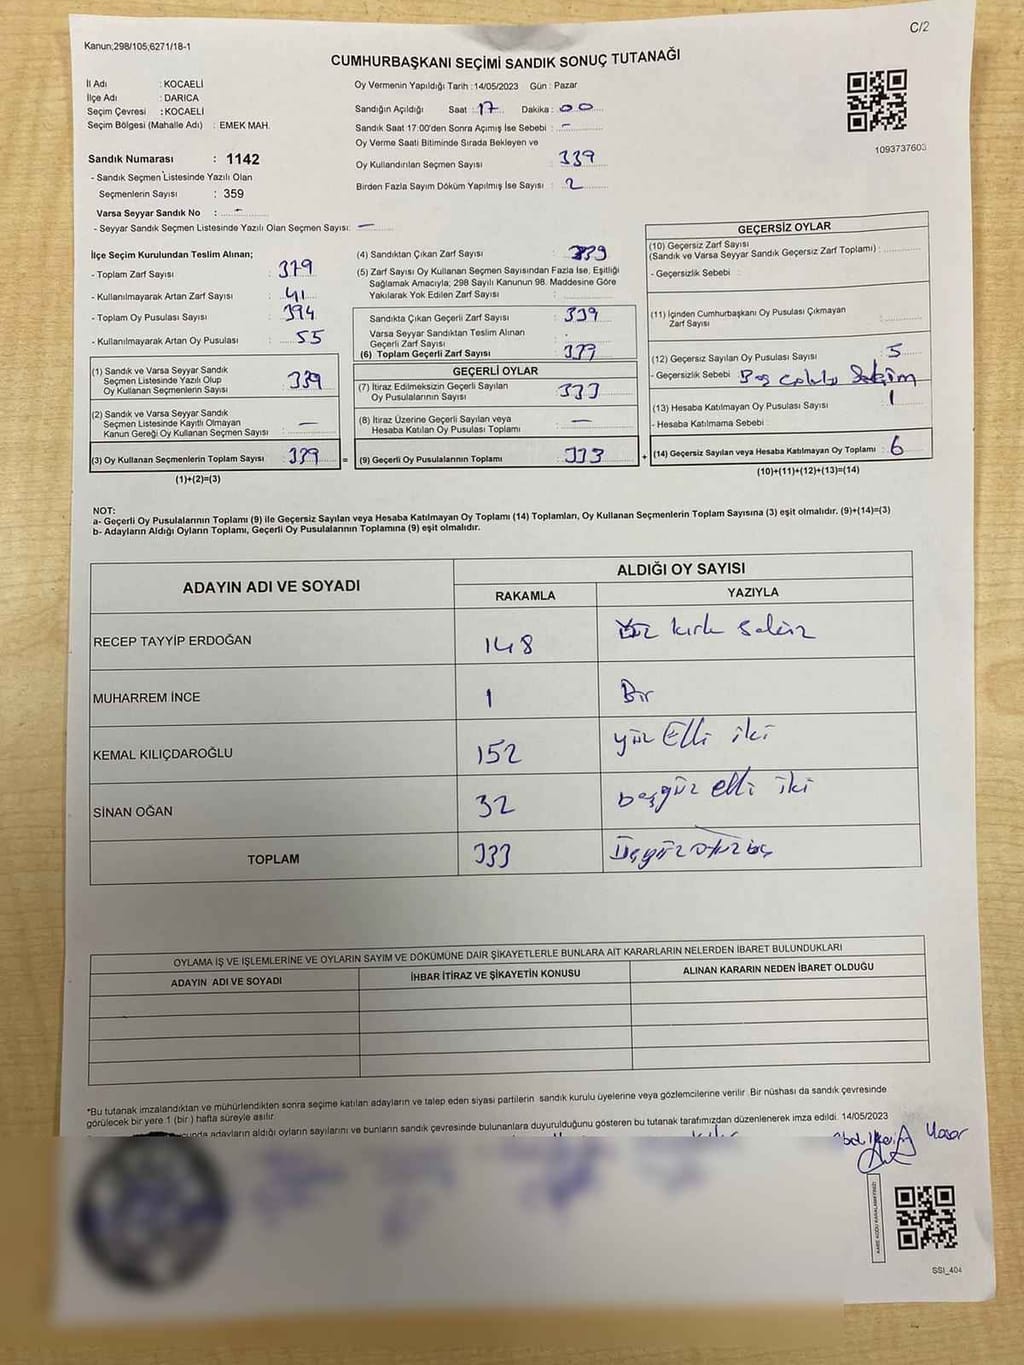 C/2
Kanun;298/105;6271/18-1
CUMHURBAŞKANI SEÇİMİ SANDIK SONUÇ TUTANAĞI
İl Adı : KOCAELİ
İlçe Adı : DARICA
Seçim Çevresi : KOCAELİ
Seçim Bölgesi (Mahalle Adı) : EMEK MAH.
Sandık Numarası : 1142
- Sandık Seçmen Listesinde Yazılı Olan
Seçmenlerin Sayısı : 359
Varsa Seyyar Sandık No : -
- Seyyar Sandık Seçmen Listesinde Yazılı Olan Seçmen Sayısı: —
Oy Vermenin Yapıldığı Tarih : 14/05/2023 Gün : Pazar
Sandığın Açıldığı Saat : 17 Dakika : 00
Sandık Saat 17:00'den Sonra Açımış İse Sebebi : -
Oy Verme Saati Bitiminde Sırada Bekleyen ve
Oy Kullandırılan Seçmen Sayısı : 339
Birden Fazla Sayım Döküm Yapılmış İse Sayısı : 2
1093737603
İlçe Seçim Kurulundan Teslim Alınan;
- Toplam Zarf Sayısı : 379
- Kullanılmayarak Artan Zarf Sayısı : 41
- Toplam Oy Pusulası Sayısı : 394
- Kullanılmayarak Artan Oy Pusulası : 55
(1) Sandık ve Varsa Seyyar Sandık
Seçmen Listesinde Yazılı Olup
Oy Kullanan Seçmenlerin Sayısı : 339
(2) Sandık ve Varsa Seyyar Sandık
Seçmen Listesinde Kayıtlı Olmayan
Kanun Gereği Oy Kullanan Seçmen Sayısı : —
(3) Oy Kullanan Seçmenlerin Toplam Sayısı : 339
(1)+(2)=(3)
(4) Sandıktan Çıkan Zarf Sayısı : 339
(5) Zarf Sayısı Oy Kullanan Seçmen Sayısından Fazla İse, Eşitliği
Sağlamak Amacıyla; 298 Sayılı Kanunun 98. Maddesine Göre
Yakılarak Yok Edilen Zarf Sayısı :
Sandıkta Çıkan Geçerli Zarf Sayısı : 339
Varsa Seyyar Sandıktan Teslim Alınan
Geçerli Zarf Sayısı :
(6) Toplam Geçerli Zarf Sayısı : 339
GEÇERLİ OYLAR
(7) İtiraz Edilmeksizin Geçerli Sayılan
Oy Pusulalarının Sayısı : 333
(8) İtiraz Üzerine Geçerli Sayılan veya
Hesaba Katılan Oy Pusulası Toplamı : —
= (9) Geçerli Oy Pusulalarının Toplamı : 333
GEÇERSİZ OYLAR
(10) Geçersiz Zarf Sayısı
(Sandık ve Varsa Seyyar Sandık Geçersiz Zarf Toplamı) :
- Geçersizlik Sebebi :
(11) İçinden Cumhurbaşkanı Oy Pusulası Çıkmayan
Zarf Sayısı :
(12) Geçersiz Sayılan Oy Pusulası Sayısı : 5
- Geçersizlik Sebebi :
(13) Hesaba Katılmayan Oy Pusulası Sayısı : 1
- Hesaba Katılmama Sebebi
+ (14) Geçersiz Sayılan veya Hesaba Katılmayan Oy Toplamı : 6
(10)+(11)+(12)+(13)=(14)
NOT:
a- Geçerli Oy Pusulalarının Toplamı (9) ile Geçersiz Sayılan veya Hesaba Katılmayan Oy Toplamı (14) Toplamları, Oy Kullanan Seçmenlerin Toplam Sayısına (3) eşit olmalıdır. (9)+(14)=(3)
b- Adayların Aldığı Oyların Toplamı, Geçerli Oy Pusulalarının Toplamına (9) eşit olmalıdır.
ADAYIN ADI VE SOYADI
ALDIĞI OY SAYISI
RAKAMLA YAZIYLA
RECEP TAYYİP ERDOĞAN 148 Yüz kırk sekiz
MUHARREM İNCE 1 Bir
KEMAL KILIÇDAROĞLU 152 yüz Elli iki
SİNAN OĞAN 32 beşyüz elli iki
TOPLAM 333 Üçyüz otuz üç
OYLAMA İŞ VE İŞLEMLERİNE VE OYLARIN SAYIM VE DÖKÜMÜNE DAİR ŞİKAYETLERLE BUNLARA AİT KARARLARIN NELERDEN İBARET BULUNDUKLARI
ADAYIN ADI VE SOYADI İHBAR İTİRAZ VE ŞİKAYETİN KONUSU ALINAN KARARIN NEDEN İBARET OLDUĞU
*Bu tutanak imzalandıktan ve mühürlendikten sonra seçime katılan adayların ve talep eden siyasi partilerin sandık kurulu üyelerine veya gözlemcilerine verilir. Bir nüshası da sandık çevresinde
görülecek bir yere 1 (bir) hafta süreyle asılır.
adayların aldığı oyların sayılarını ve bunların sandık çevresinde bulunanlara duyurulduğunu gösteren bu tutanak tarafımızdan düzenlenerek imza edildi. 14/05/2023
SSI_404